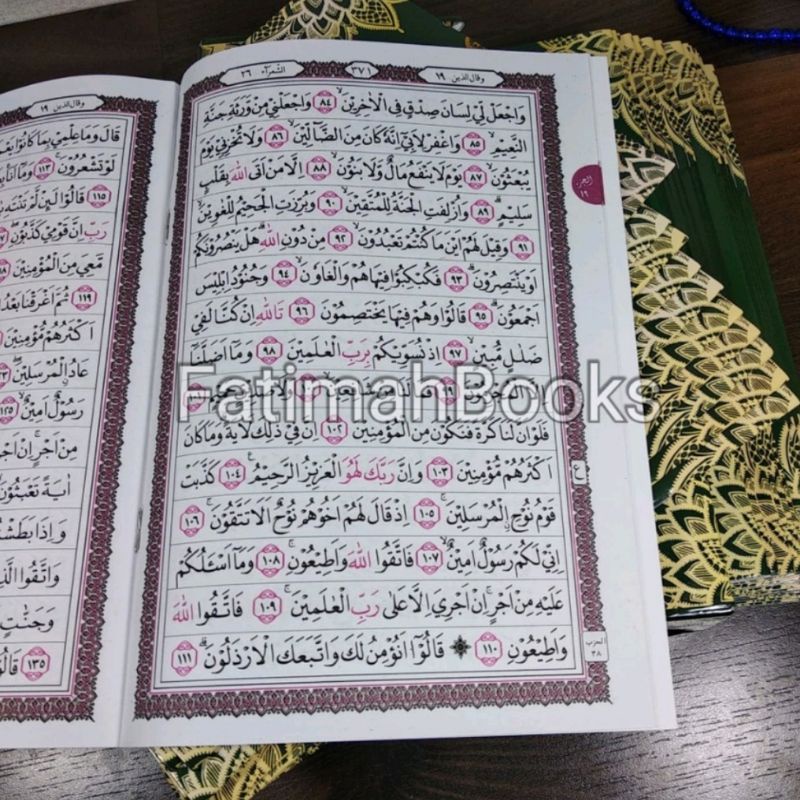 وقال الذين ١٩ ٣٧١ الشعرآء ٢٦
وَاجْعَلْ لِّيْ لِسَانَ صِدْقٍ فِى الْاٰخِرِيْنَ ۙ ٨٤ وَاجْعَلْنِيْ مِنْ وَّرَثَةِ جَنَّةِ
النَّعِيْمِ ۙ ٨٥ وَاغْفِرْ لِاَبِيْٓ اِنَّهٗ كَانَ مِنَ الضَّاۤلِّيْنَ ۙ ٨٦ وَلَا تُخْزِنِيْ يَوْمَ
يُبْعَثُوْنَ ۙ ٨٧ يَوْمَ لَا يَنْفَعُ مَالٌ وَّلَا بَنُوْنَ ۙ ٨٨ اِلَّا مَنْ اَتَى اللّٰهَ بِقَلْبٍ
سَلِيْمٍ ۗ ٨٩ وَاُزْلِفَتِ الْجَنَّةُ لِلْمُتَّقِيْنَ ۙ ٩٠ وَبُرِّزَتِ الْجَحِيْمُ لِلْغٰوِيْنَ ۙ
٩١ وَقِيْلَ لَهُمْ اَيْنَ مَا كُنْتُمْ تَعْبُدُوْنَ ۙ ٩٢ مِنْ دُوْنِ اللّٰهِ ۗ هَلْ يَنْصُرُوْنَكُمْ
اَوْ يَنْتَصِرُوْنَ ۗ ٩٣ فَكُبْكِبُوْا فِيْهَا هُمْ وَالْغَاوٗنَ ۙ ٩٤ وَجُنُوْدُ اِبْلِيْسَ
اَجْمَعُوْنَ ۗ ٩٥ قَالُوْا وَهُمْ فِيْهَا يَخْتَصِمُوْنَ ٩٦ تَاللّٰهِ اِنْ كُنَّا لَفِيْ
ضَلٰلٍ مُّبِيْنٍ ۙ ٩٧ اِذْ نُسَوِّيْكُمْ بِرَبِّ الْعٰلَمِيْنَ ٩٨ وَمَآ اَضَلَّنَآ
٩٩
فَلَوْ اَنَّ لَنَا كَرَّةً فَنَكُوْنَ مِنَ الْمُؤْمِنِيْنَ ١٠٢ اِنَّ فِيْ ذٰلِكَ لَاٰيَةً ۗ وَمَا كَانَ
اَكْثَرُهُمْ مُّؤْمِنِيْنَ ١٠٣ وَاِنَّ رَبَّكَ لَهُوَ الْعَزِيْزُ الرَّحِيْمُ ࣖ ١٠٤ كَذَّبَتْ
قَوْمُ نُوْحِ ۨالْمُرْسَلِيْنَ ۚ ١٠٥ اِذْ قَالَ لَهُمْ اَخُوْهُمْ نُوْحٌ اَلَا تَتَّقُوْنَ ۚ ١٠٦
اِنِّيْ لَكُمْ رَسُوْلٌ اَمِيْنٌ ۙ ١٠٧ فَاتَّقُوا اللّٰهَ وَاَطِيْعُوْنِ ۚ ١٠٨ وَمَآ اَسْـَٔلُكُمْ
عَلَيْهِ مِنْ اَجْرٍ ۚ اِنْ اَجْرِيَ اِلَّا عَلٰى رَبِّ الْعٰلَمِيْنَ ۚ ١٠٩ فَاتَّقُوا اللّٰهَ
وَاَطِيْعُوْنِ ١١٠ ۞ قَالُوْٓا اَنُؤْمِنُ لَكَ وَاتَّبَعَكَ الْاَرْذَلُوْنَ ۗ ١١١
الجزء ١٩
ع
الحزب ٣٨
وقال الذين ١٩
قَالَ وَمَا عِلْمِيْ بِمَا كَانُوْا
لَوْ تَشْعُرُوْنَ ۚ ١١٣ وَمَآ
١١٥ قَالُوْا لَىِٕنْ لَّمْ تَنْتَهِ
رَبِّ اِنَّ قَوْمِيْ كَذَّبُوْنِ
مَّعِيَ مِنَ الْمُؤْمِنِيْنَ
١١٩ ثُمَّ اَغْرَقْنَا بَعْدُ
اَكْثَرُهُمْ مُّؤْمِنِيْنَ
عَادُ ۨالْمُرْسَلِيْنَ
رَسُوْلٌ اَمِيْنٌ ۙ ١٢٥
مِنْ اَجْرٍ ۚ اِنْ
اٰيَةً تَعْبَثُوْنَ
وَاِذَا بَطَشْتُمْ
وَاتَّقُوا
وَجَنّٰتٍ
١٣٥
FatimahBooks